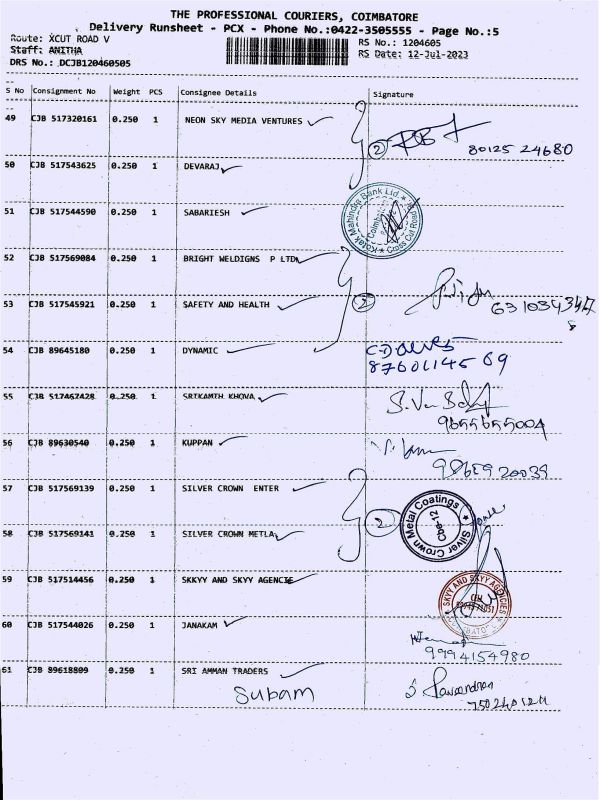 THE PROFESSIONAL COURIERS, COIMBATORE
Delivery Runsheet - PCX - Phone No.:0422-3505555 - Page No.:5
Route: XCUT ROAD V
RS No.: 1204605
Staff: ANITHA
RS Date: 12-Jul-2023
DRS No.: DCJB120460505
S No Consignment No Weight PCS Consignee Details Signature
49 CJB 517320161 0.250 1 NEON SKY MEDIA VENTURES
2
80125 24680
50 CJB 517543625 0.250 1 DEVARAJ
51 CJB 517544590 0.250 1 SABARIESH
Kotak Mahindra Bank Ltd Cross Cut Road
Coimbatore
52 CJB 517569084 0.250 1 BRIGHT WELDIGNS P LTD
53 CJB 517545921 0.250 1 SAFETY AND HEALTH
2
54 CJB 89645180 0.250 1 DYNAMIC
55 CJB 517467428 0.250 1 SRIKAMTH KHOVA
9655655004
56 CJB 89630540 0.250 1 KUPPAN
57 CJB 517569139 0.250 1 SILVER CROWN ENTER
2
Silver Crown Metal Coatings
Cbe-12
58 CJB 517569141 0.250 1 SILVER CROWN METLA
59 CJB 517514456 0.250 1 SKKYY AND SKYY AGENCIE
SKYY AND SKYY AGENCIES
60 CJB 517544026 0.250 1 JANAKAM
9994154980
61 CJB 89618809 0.250 1 SRI AMMAN TRADERS
Subam